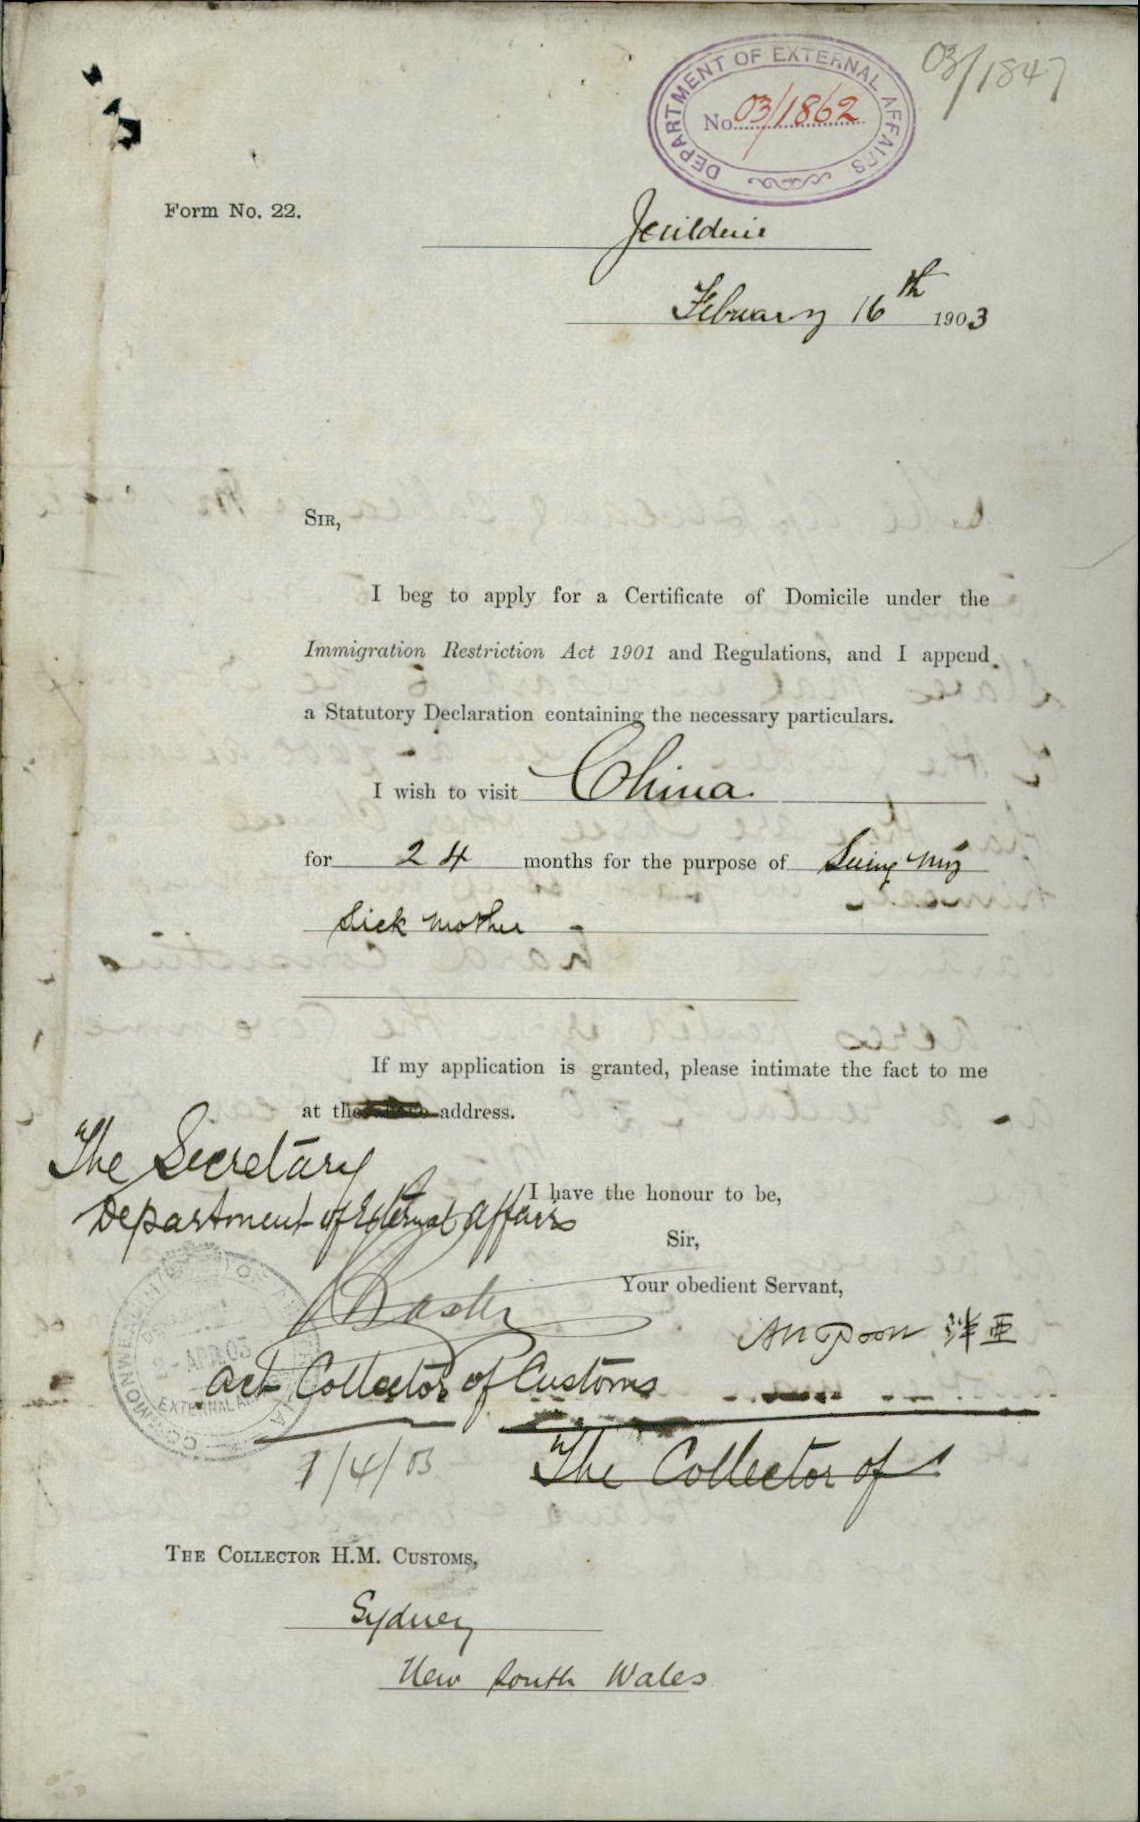 03/1847
DEPARTMENT OF EXTERNAL AFFAIRS
No. 03/1862
Form No. 22.
Jerilderie
February 16th 1903
SIR,
I beg to apply for a Certificate of Domicile under the
Immigration Restriction Act 1901 and Regulations, and I append
a Statutory Declaration containing the necessary particulars.
I wish to visit China
for 24 months for the purpose of Seeing my
Sick mother
If my application is granted, please intimate the fact to me
at the address.
The Secretary
Department of External Affairs
I have the honour to be,
Sir,
Your obedient Servant,
Ah Poon 洋亜
COMMONWEALTH OF
2 - APR 03
EXTERNAL
Act Collector of Customs
1/4/03
The Collector of
THE COLLECTOR H.M. CUSTOMS,
Sydney
New South Wales